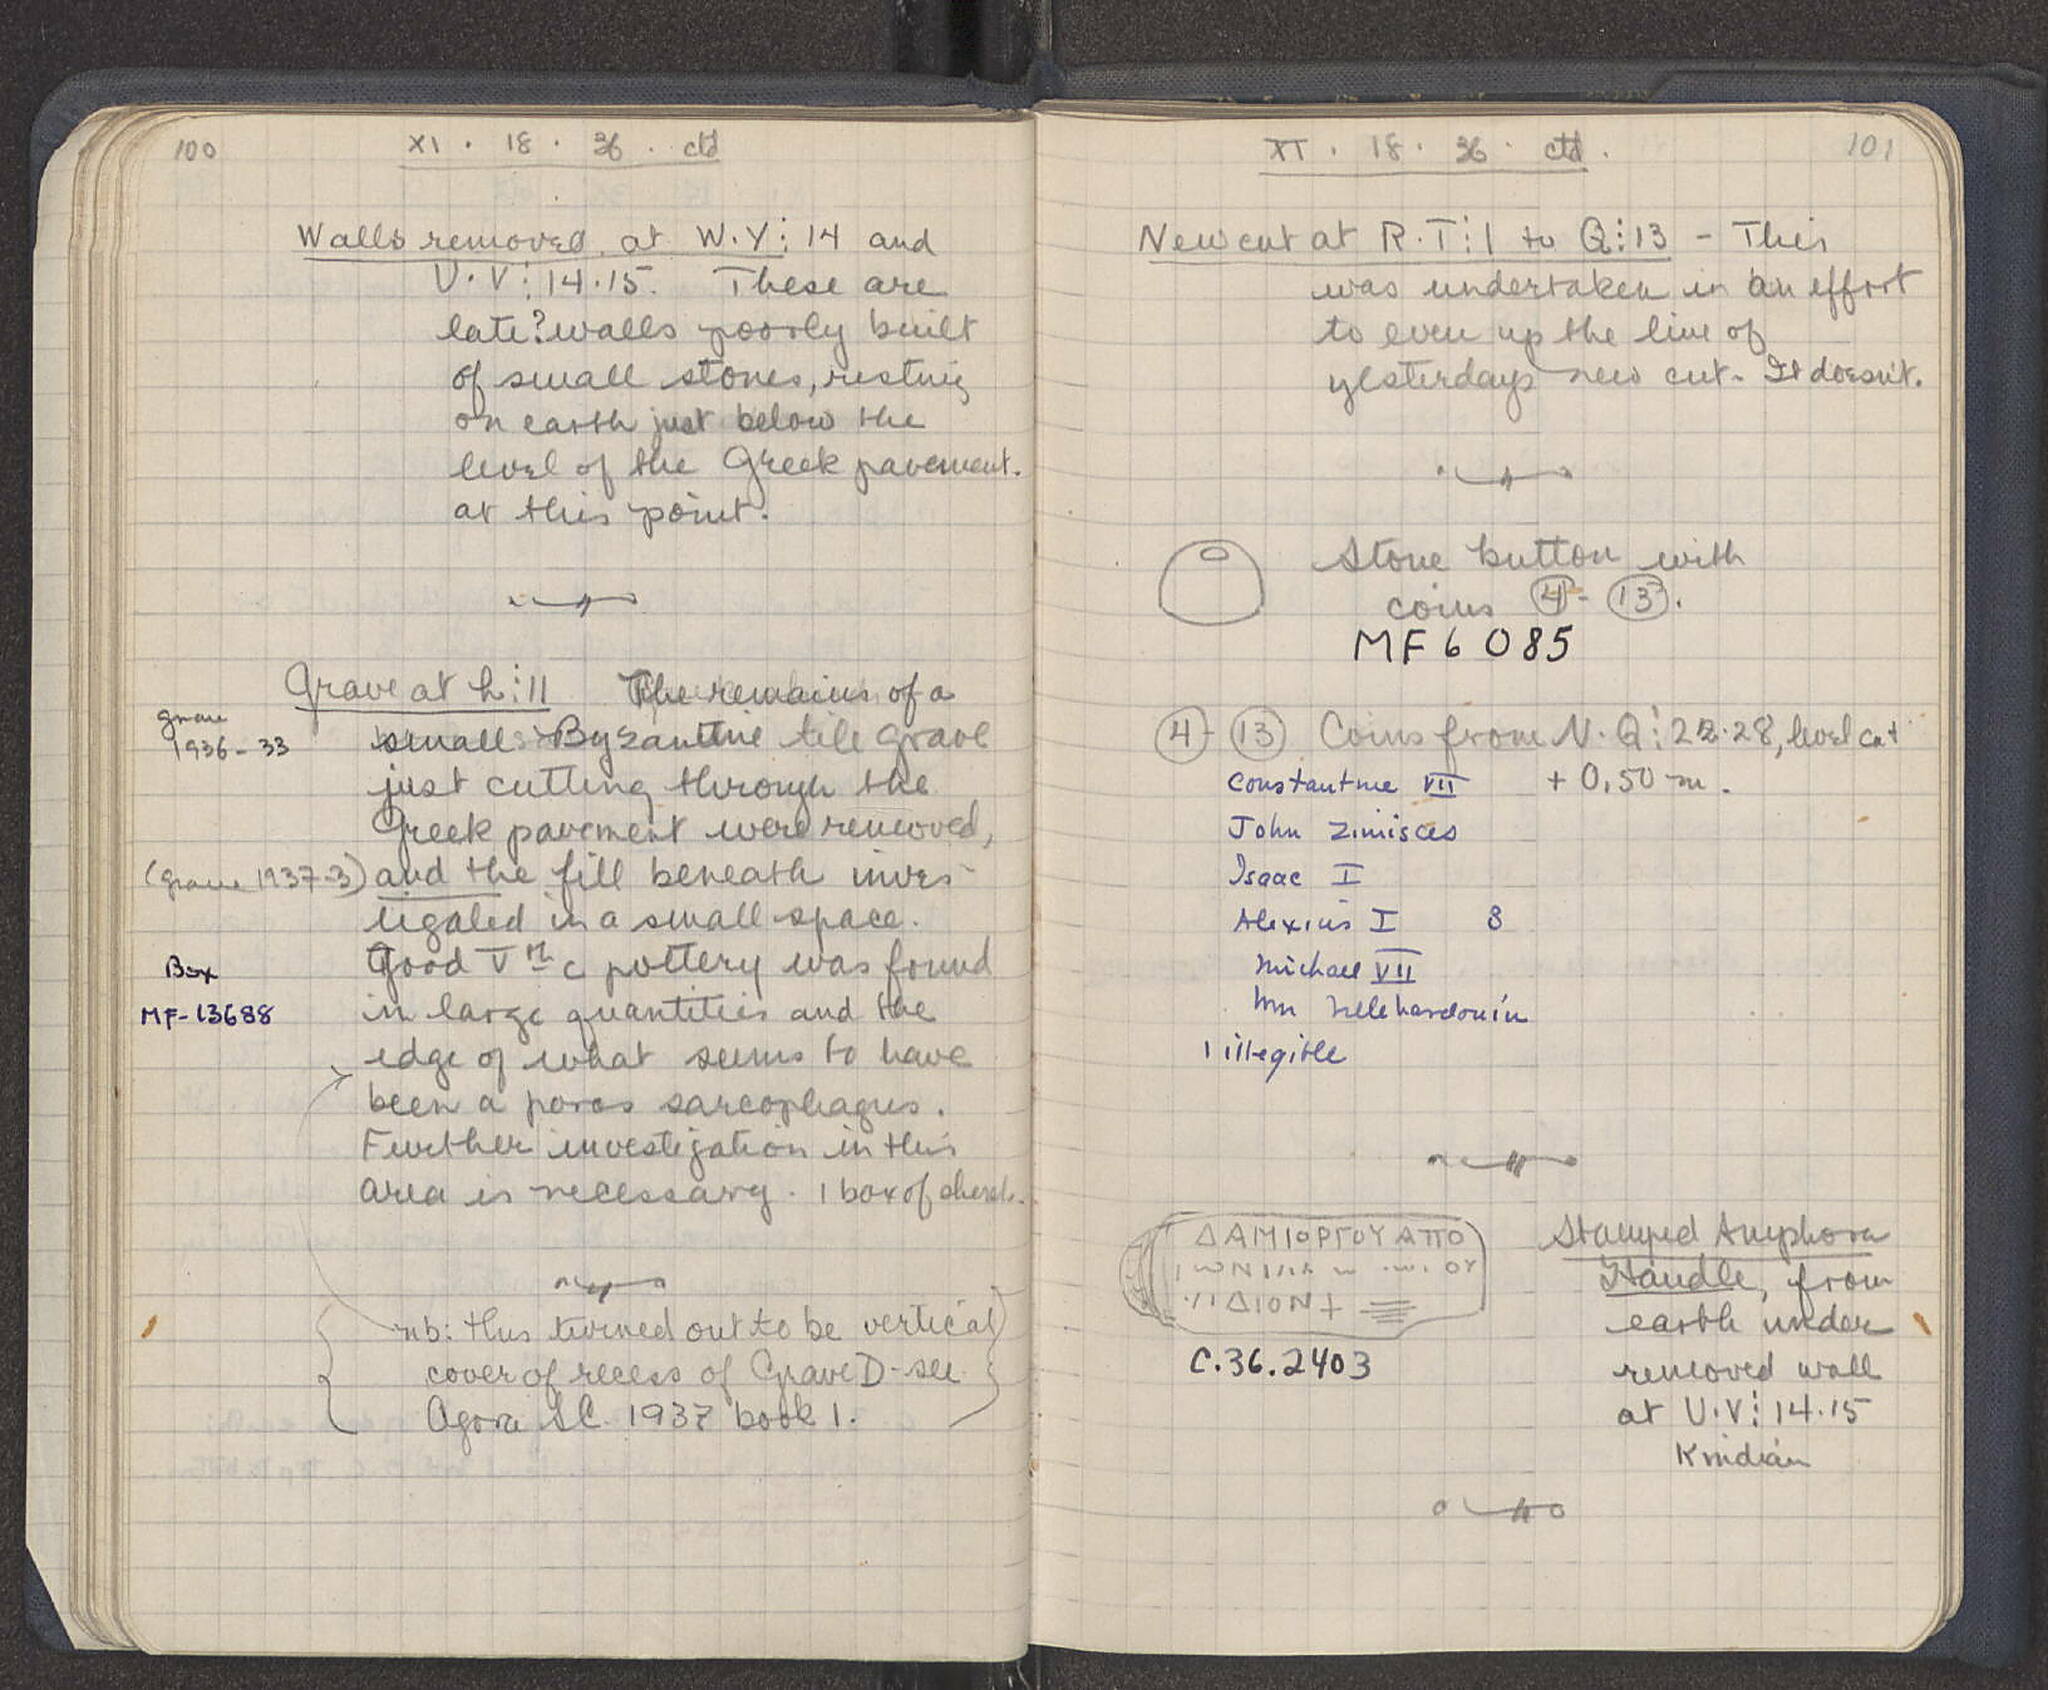 100
XI . 18 . 36 . ctd
Walls removed at W.Y:14 and
U.V:14.15. These are
late? walls poorly built
of small stones, resting
on earth just below the
level of the Greek pavement.
at this point.
Grave at h:11 The remains of a
grave
1936-33
small Byzantine tile grave
just cutting through the
Greek pavement were removed,
(grave 1937-3) and the fill beneath inves-
tigated in a small space.
Good Vth c pottery was found
Box
MF-13688
in large quantities and the
edge of what seems to have
been a poros sarcophagus.
Further investigation in this
area is necessary. 1 box of sherds.
nb: this turned out to be vertical
cover of recess of Grave D - see
Agora SC. 1937 book 1.
101
XI . 18 . 36 . ctd.
New cut at R.T:1 to Q:13 - This
was undertaken in an effort
to even up the line of
yesterdays new cut. It doesn't.
Stone button with
coins 4 - 13.
MF 6085
4 - 13 Coins from N.Q:22.28, level cut
Constantine VII + 0,50 m.
John Zimisces
Isaac I
Alexius I 8
Michael VII
Wm Villehardouin
1 illegible
ΔΑΜΙΟΡΓΟΥ ΑΠΟ
ΔΙΟΝ
Stamped Amphora
Handle, from
earth under
removed wall
at U.V:14.15
Knidian
C.36.2403